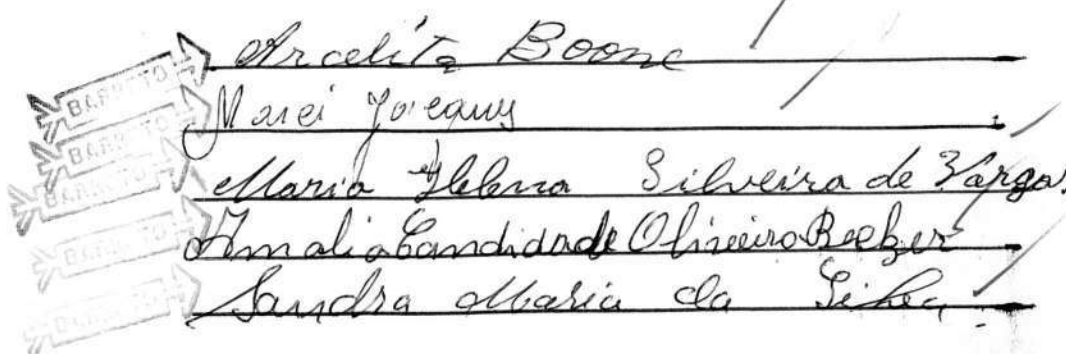 Arcelita Boone
BARRETO
Marei
BARRETO
Maria Helena Silveira de Vargas
BARRETO
Amalia Candida de Oliveira Becker
BARRETO
Sandra Maria da Silva
BARRETO